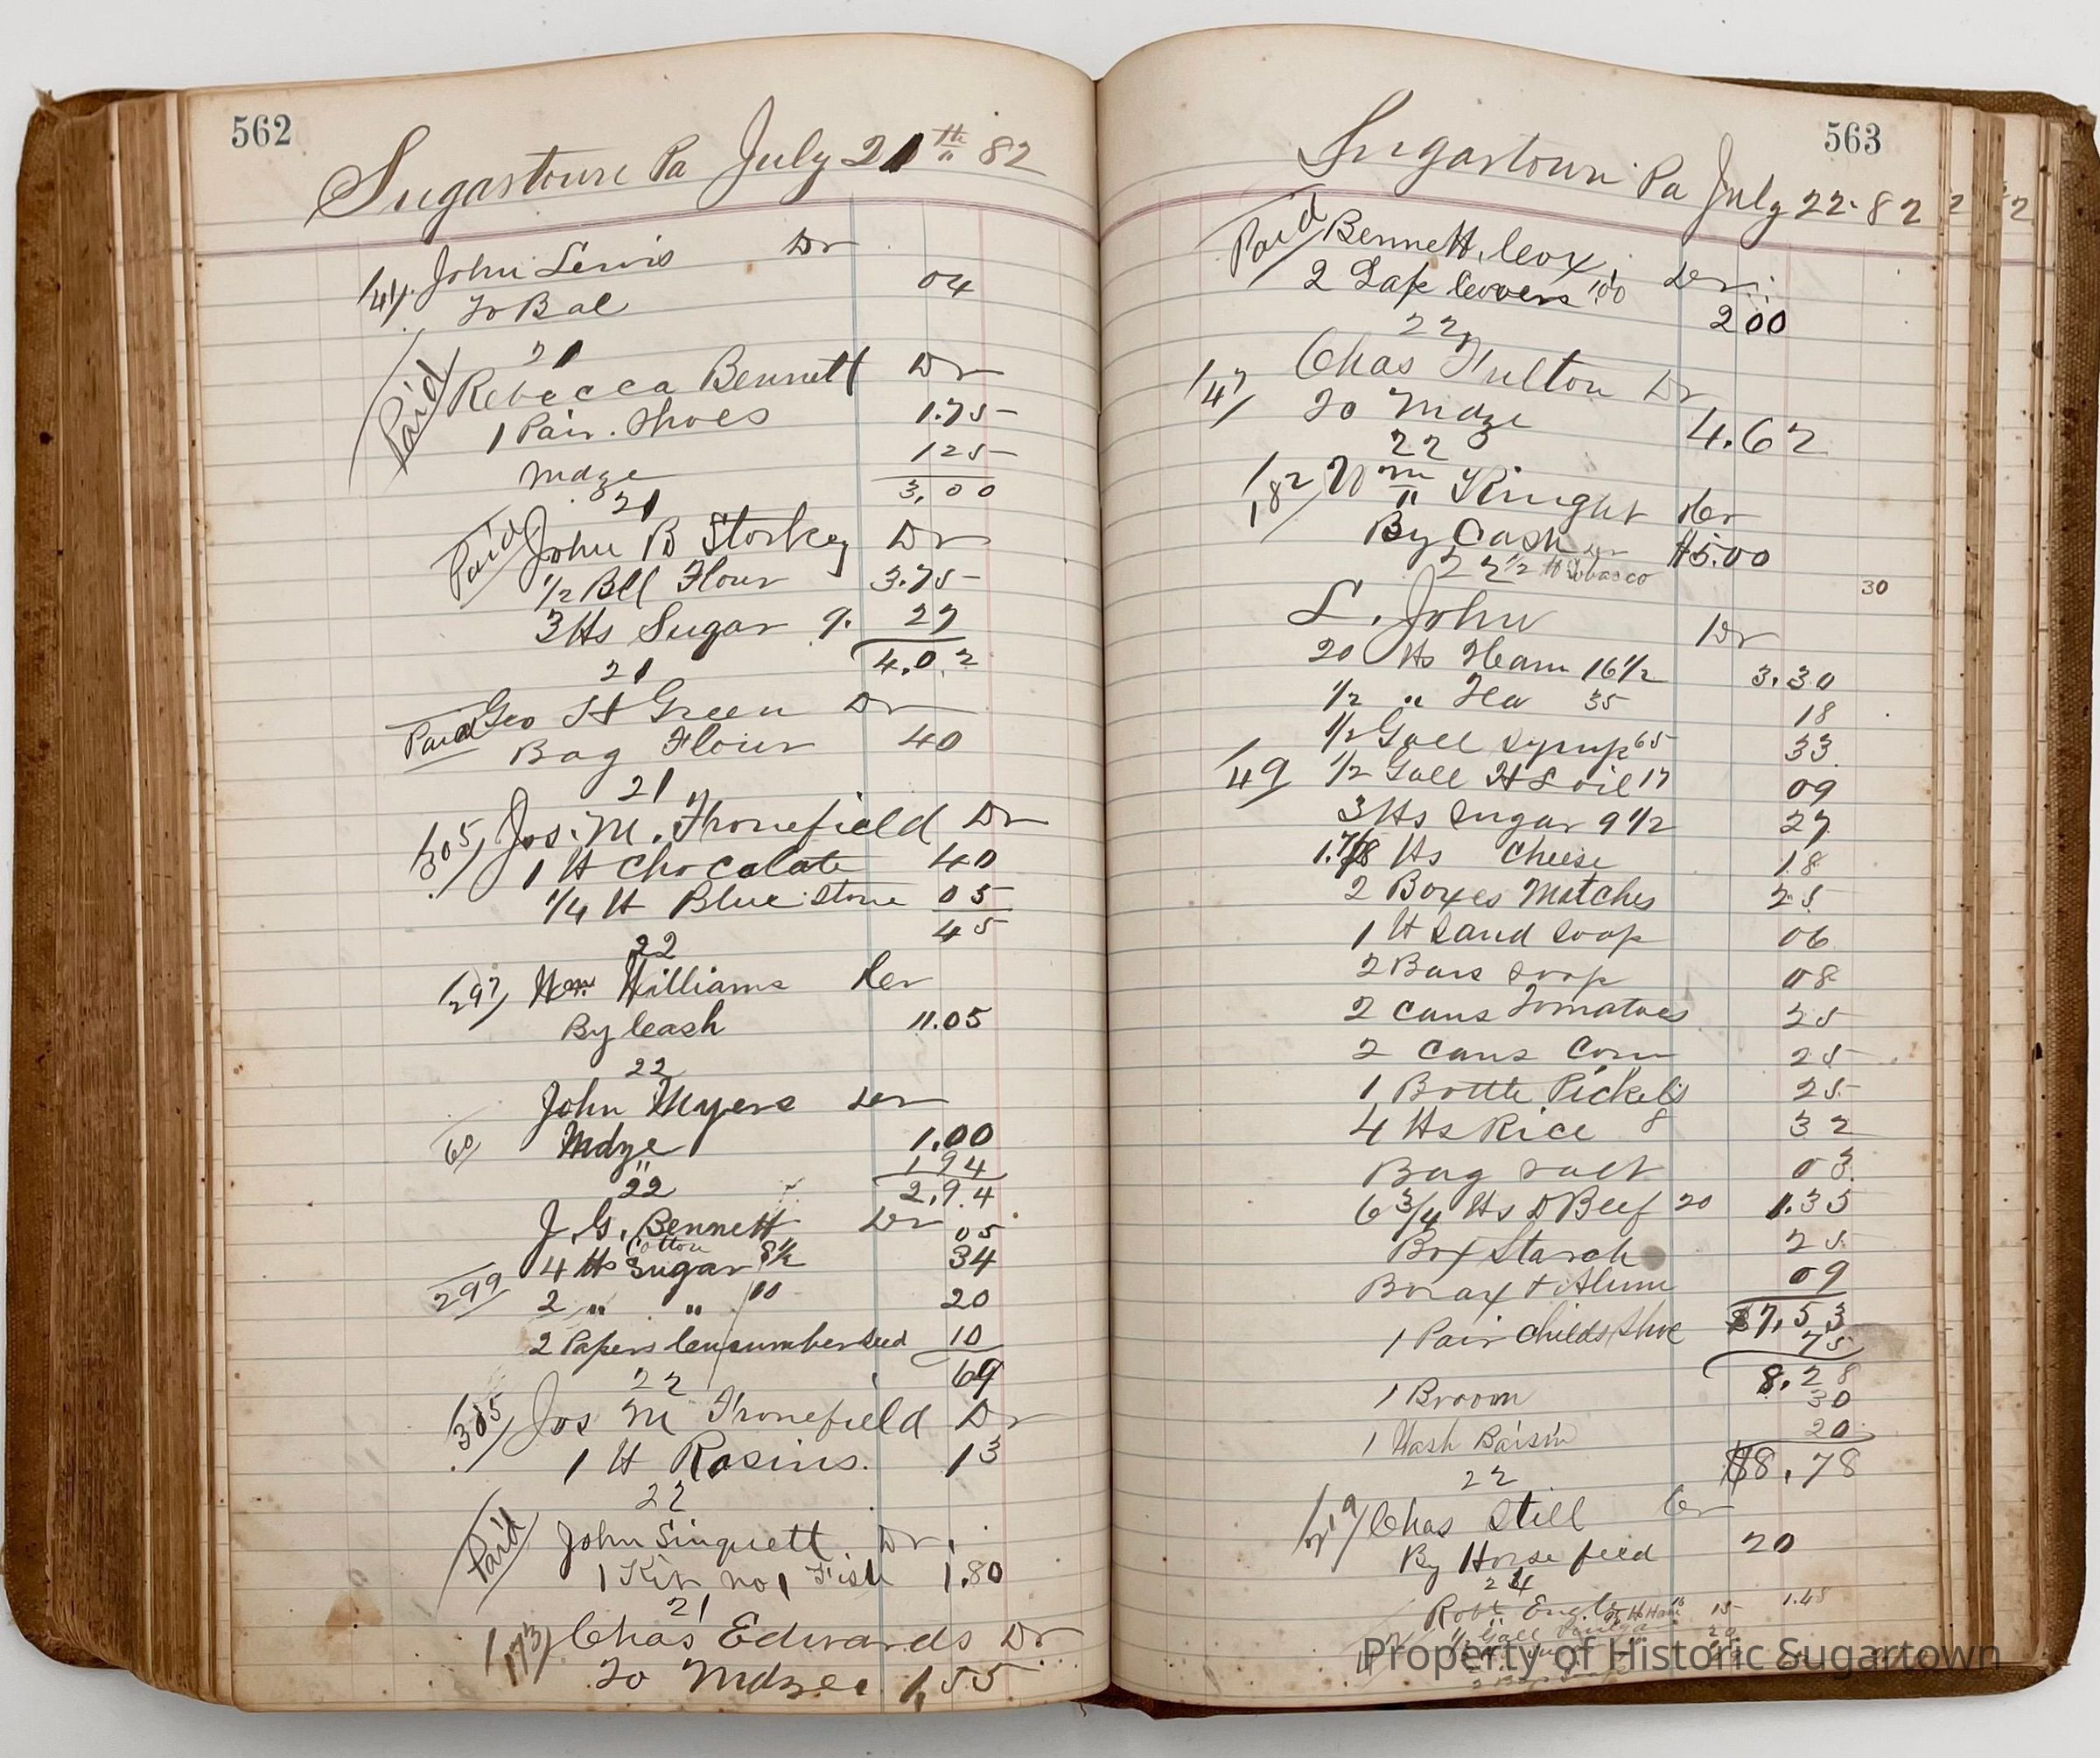 562
Sugartown Pa July 21th " 82
141 John Lewis Dr
To Bal 04
21
Paid Rebecca Bennett Dr
1 Pair. Shoes 1.75
Mdze 1 25
3,00
21
Paid John B Storkey Dr
1/2 Bll Flour 3.75
3 lbs Sugar 9. 27
4.02
21
Paid Geo H Green Dr
Bag Flour 40
21
305 Jos. M. Fronefield Dr
1 lb Chocalate 40
1/4 lb Blue Stone 05
45
22
297 Wm Williams Cr
By Cash 11.05
22
John Myers Dr
60 Mdze 1.00
" 1 94
22 2.94
J. G. Bennett Dr
Cotton 05
4 lbs Sugar 8 1/2 34
299 2 " " 10 20
2 Papers Cucumber Seed 10
69
22
305 Jos M Fronefield Dr
1 lb Rasins. 13
22
Paid John Sinquett Dr
1 Kit no 1 Fish 1.80
21
173 Chas Edwards Dr
To Mdze 1,55
563
Sugartown Pa July 22. 82
Paid Bennett, Cox, Dr
2 Lap Covers 1.00 2 00
22
147 Chas Fulton Dr
To Mdze 4.62
22
182 Wm Knight Cr
By Cash $5.00
22 1/2 lb Tobacco 30
L. John Dr
20 lbs Ham 16 1/2 3.30
1/2 " Tea 35 18
1/2 Gall Syrup 65 33
49 1/2 Gall H L oil 17 09
3 lbs Sugar 9 1/2 27
1.7/8 lbs Cheese 18
2 Boxes Matches 25
1 lb Sand Soap 06
2 Bars Soap 08
2 Cans Tomatoes 25
2 Cans Corn 25
1 Bottle Pickels 25
4 lbs Rice 8 32
Bag Salt 03
6 3/4 lbs D Beef 20 1.35
Box Starch 25
Borax + Alum 09
$7,53
1 Pair Childs Shoe 75
8.28
1 Broom 30
1 Wash Baisin 20
$8,78
22
Chas Still Cr
By Horse feed 20
24
Robt 1.48
Property of Historic Sugartown